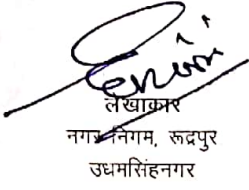 लेखाकार
नगर निगम, रूद्रपुर
उधमसिंहनगर